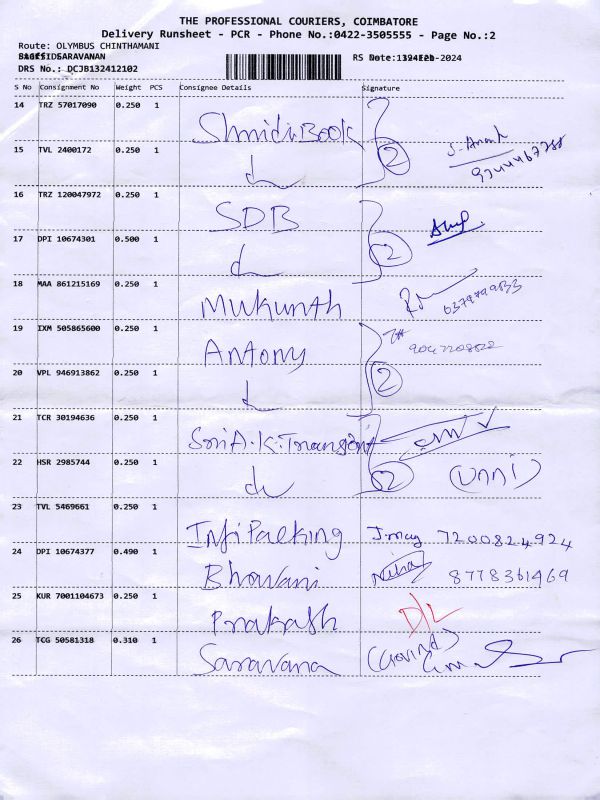 THE PROFESSIONAL COURIERS, COIMBATORE
Delivery Runsheet - PCR - Phone No.:0422-3505555 - Page No.:2
Route: OLYMBUS CHINTHAMANI
SARAVANAN RS Date: -2024
DRS No.: DCJB132412102
S No Consignment No Weight PCS Consignee Details Signature
14 TRZ 57017090 0.250 1
2
15 TVL 2400172 0.250 1
16 TRZ 120047972 0.250 1
SDB
17 DPI 10674301 0.500 1
2
18 MAA 861215169 0.250 1
Mukunth
19 IXM 505865600 0.250 1
Antony
20 VPL 946913862 0.250 1
2
21 TCR 30194636 0.250 1
22 HSR 2985744 0.250 1
2 (Unni)
23 TVL 5469661 0.250 1
Packing 7200824924
24 DPI 10674377 0.490 1
Bhavani 8778361469
25 KUR 7001104673 0.250 1
Prakash D/L
26 TCG 50581318 0.310 1
Saravana (Govind)